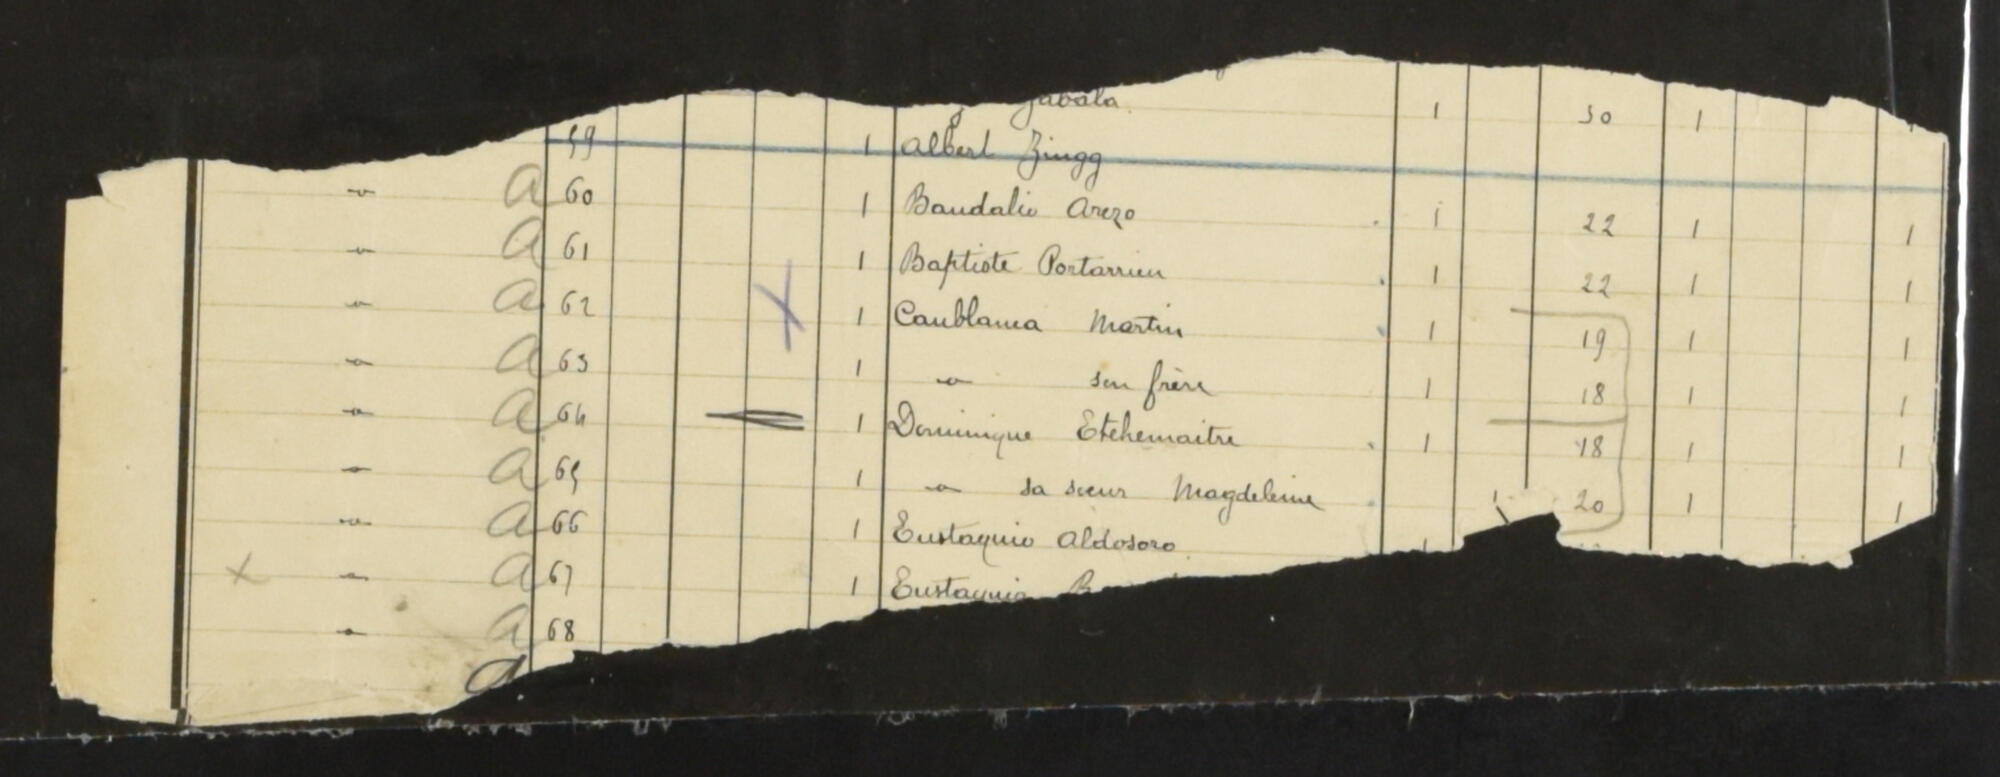 Zabala 1 30 1 1
59 1 Albert Zingg
" a 60 1 Baudalio Arezo 1 22 1 1
" a 61 1 Baptiste Portarrieu 1 22 1 1
" a 62 X 1 Caublanca Martin 1 19 1 1
" a 63 1 " son frère 1 18 1 1
" a 64 1 Dominique Etchemaitre 1 18 1 1
" a 65 1 " sa sœur Magdeleine 1 20 1 1
" a 66 1 Eustaquio Aldosoro
x " a 67 1
" a 68
a